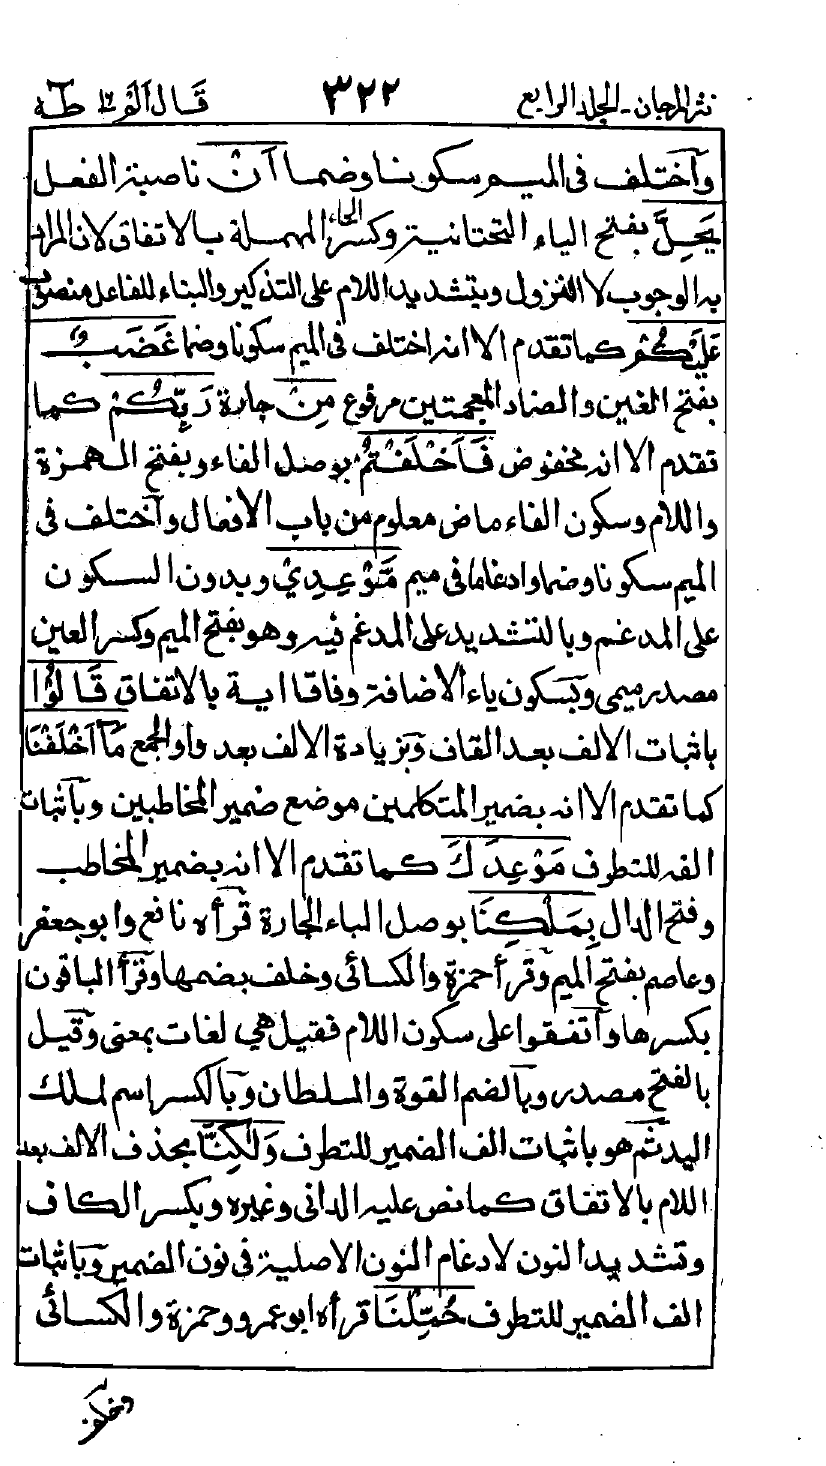 نثر المرجان - الجلد الرابع ٣٢٢ قَالَ الَمْ ١٦ طٰهٰ
وآختلف فى الميم سكونا وضما اَنْ ناصبة الفعل
يَّحِلَّ بفتح الياء التحتانية وكسر الحاء المهملة بالاتفاق لان المراد
به الوجوب لا النزول وبتشديد اللام على التذكير والبناء للفاعل منصوب
عَلَيْكُمْ كما تقدم الا انه اختلف فى الميم سكونا وضما غَضَبٌ
بفتح الغين والضاد المعجمتين مرفوع مِنْ جارة رَبِّكُمْ كما
تقدم الا انه مخفوض فَاَخْلَفْتُمْ بوصل الفاء وبفتح الهمزة
واللام وسكون الفاء ماض معلوم من باب الافعال وآختلف فى
الميم سكونا وضما وادغاما فى ميم مَّوْعِدِيْ وبدون السكون
على المدغم وبالتشديد على المدغم فيه وهو بفتح الميم وكسر العين
مصدر ميمى وبسكون ياء الاضافة وفاقا اية بالاتفاق قَالُوْا
باثبات الالف بعد القاف وبزيادة الالف بعد واو الجمع مَآ اَخْلَفْنَا
كما تقدم الا انه بضمير المتكلمين موضع ضمير المخاطبين وبآثبات
الفه للتطرف مَوْعِدَكَ كما تقدم الا انه بضمير المخاطب
وفتح الدال بِمَلْكِنَا بوصل الباء الجارة قرأه نافع وابو جعفر
وعاصم بفتح الميم وقرأ حمزة والكسائى وخلف بضمها وقرأ الباقون
بكسرها وآتفقوا على سكون اللام فقيل هى لغات بمعنى وقيل
بالفتح مصدر وبالضم القوة والسلطان وبالكسر اسم لملك
اليد ثم هو باثبات الف الضمير للتطرف وَلٰكِنَّا بحذف الالف بعد
اللام بالاتفاق كما نص عليه الدانى وغيره وبكسر الكاف
وتشديد النون لادغام النون الاصلية فى نون الضمير وباثبات
الف الضمير للتطرف حُمِّلْنَا قرأه ابو عمرو وحمزة والكسائى
وخلف